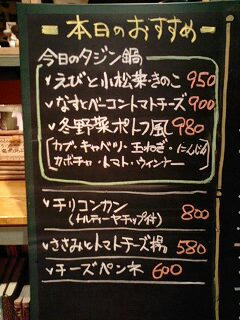 本日のおすすめ
今日のタジン鍋
えびと小松菜きのこ 950
なすベーコントマトチーズ 900
冬野菜ポトフ風 980
(カブ・キャベツ・玉ねぎ・にんじん
カボチャ・トマト・ウィンナー)
チリコンカン
(トルティーヤチップ付) 800
ささみとトマトチーズ揚 580
チーズペンネ 600